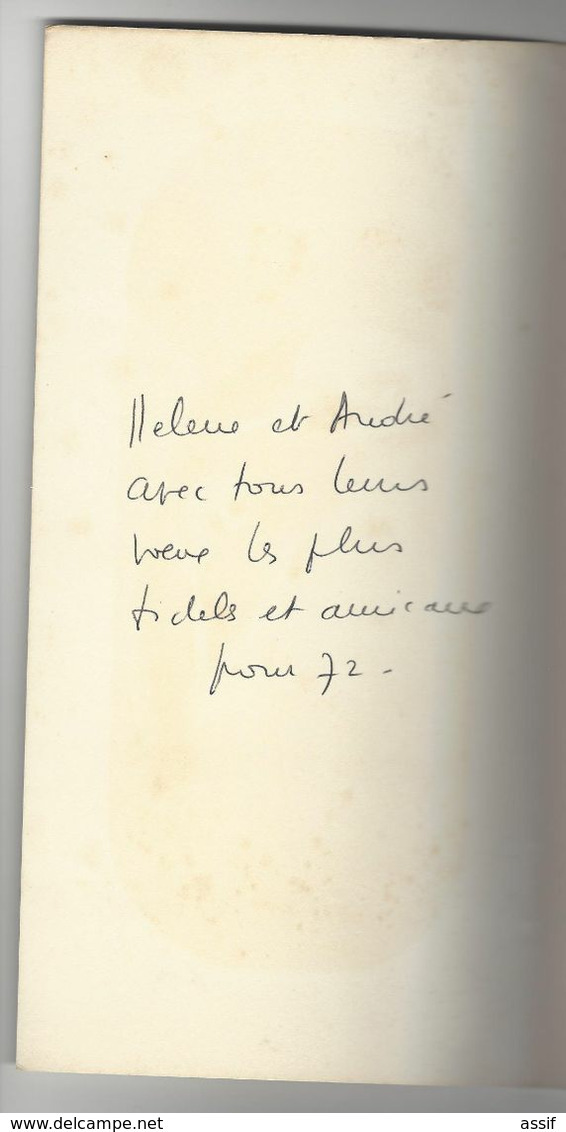 Helene et André
avec tous leurs
voeux les plus
fidels et amicaux
pour 72 -
www.delcampe.net
assif